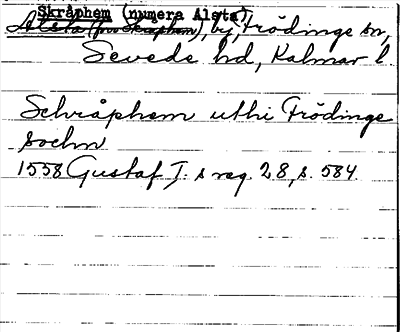 Skråphem (numera Alsta)
Alsta (förr Skråphem), by, Frödinge sn,
Sevede hd, Kalmar l.
Schråphem uthi Frödinge
sochn
1558 Gustaf I:s reg. 28, s. 584.